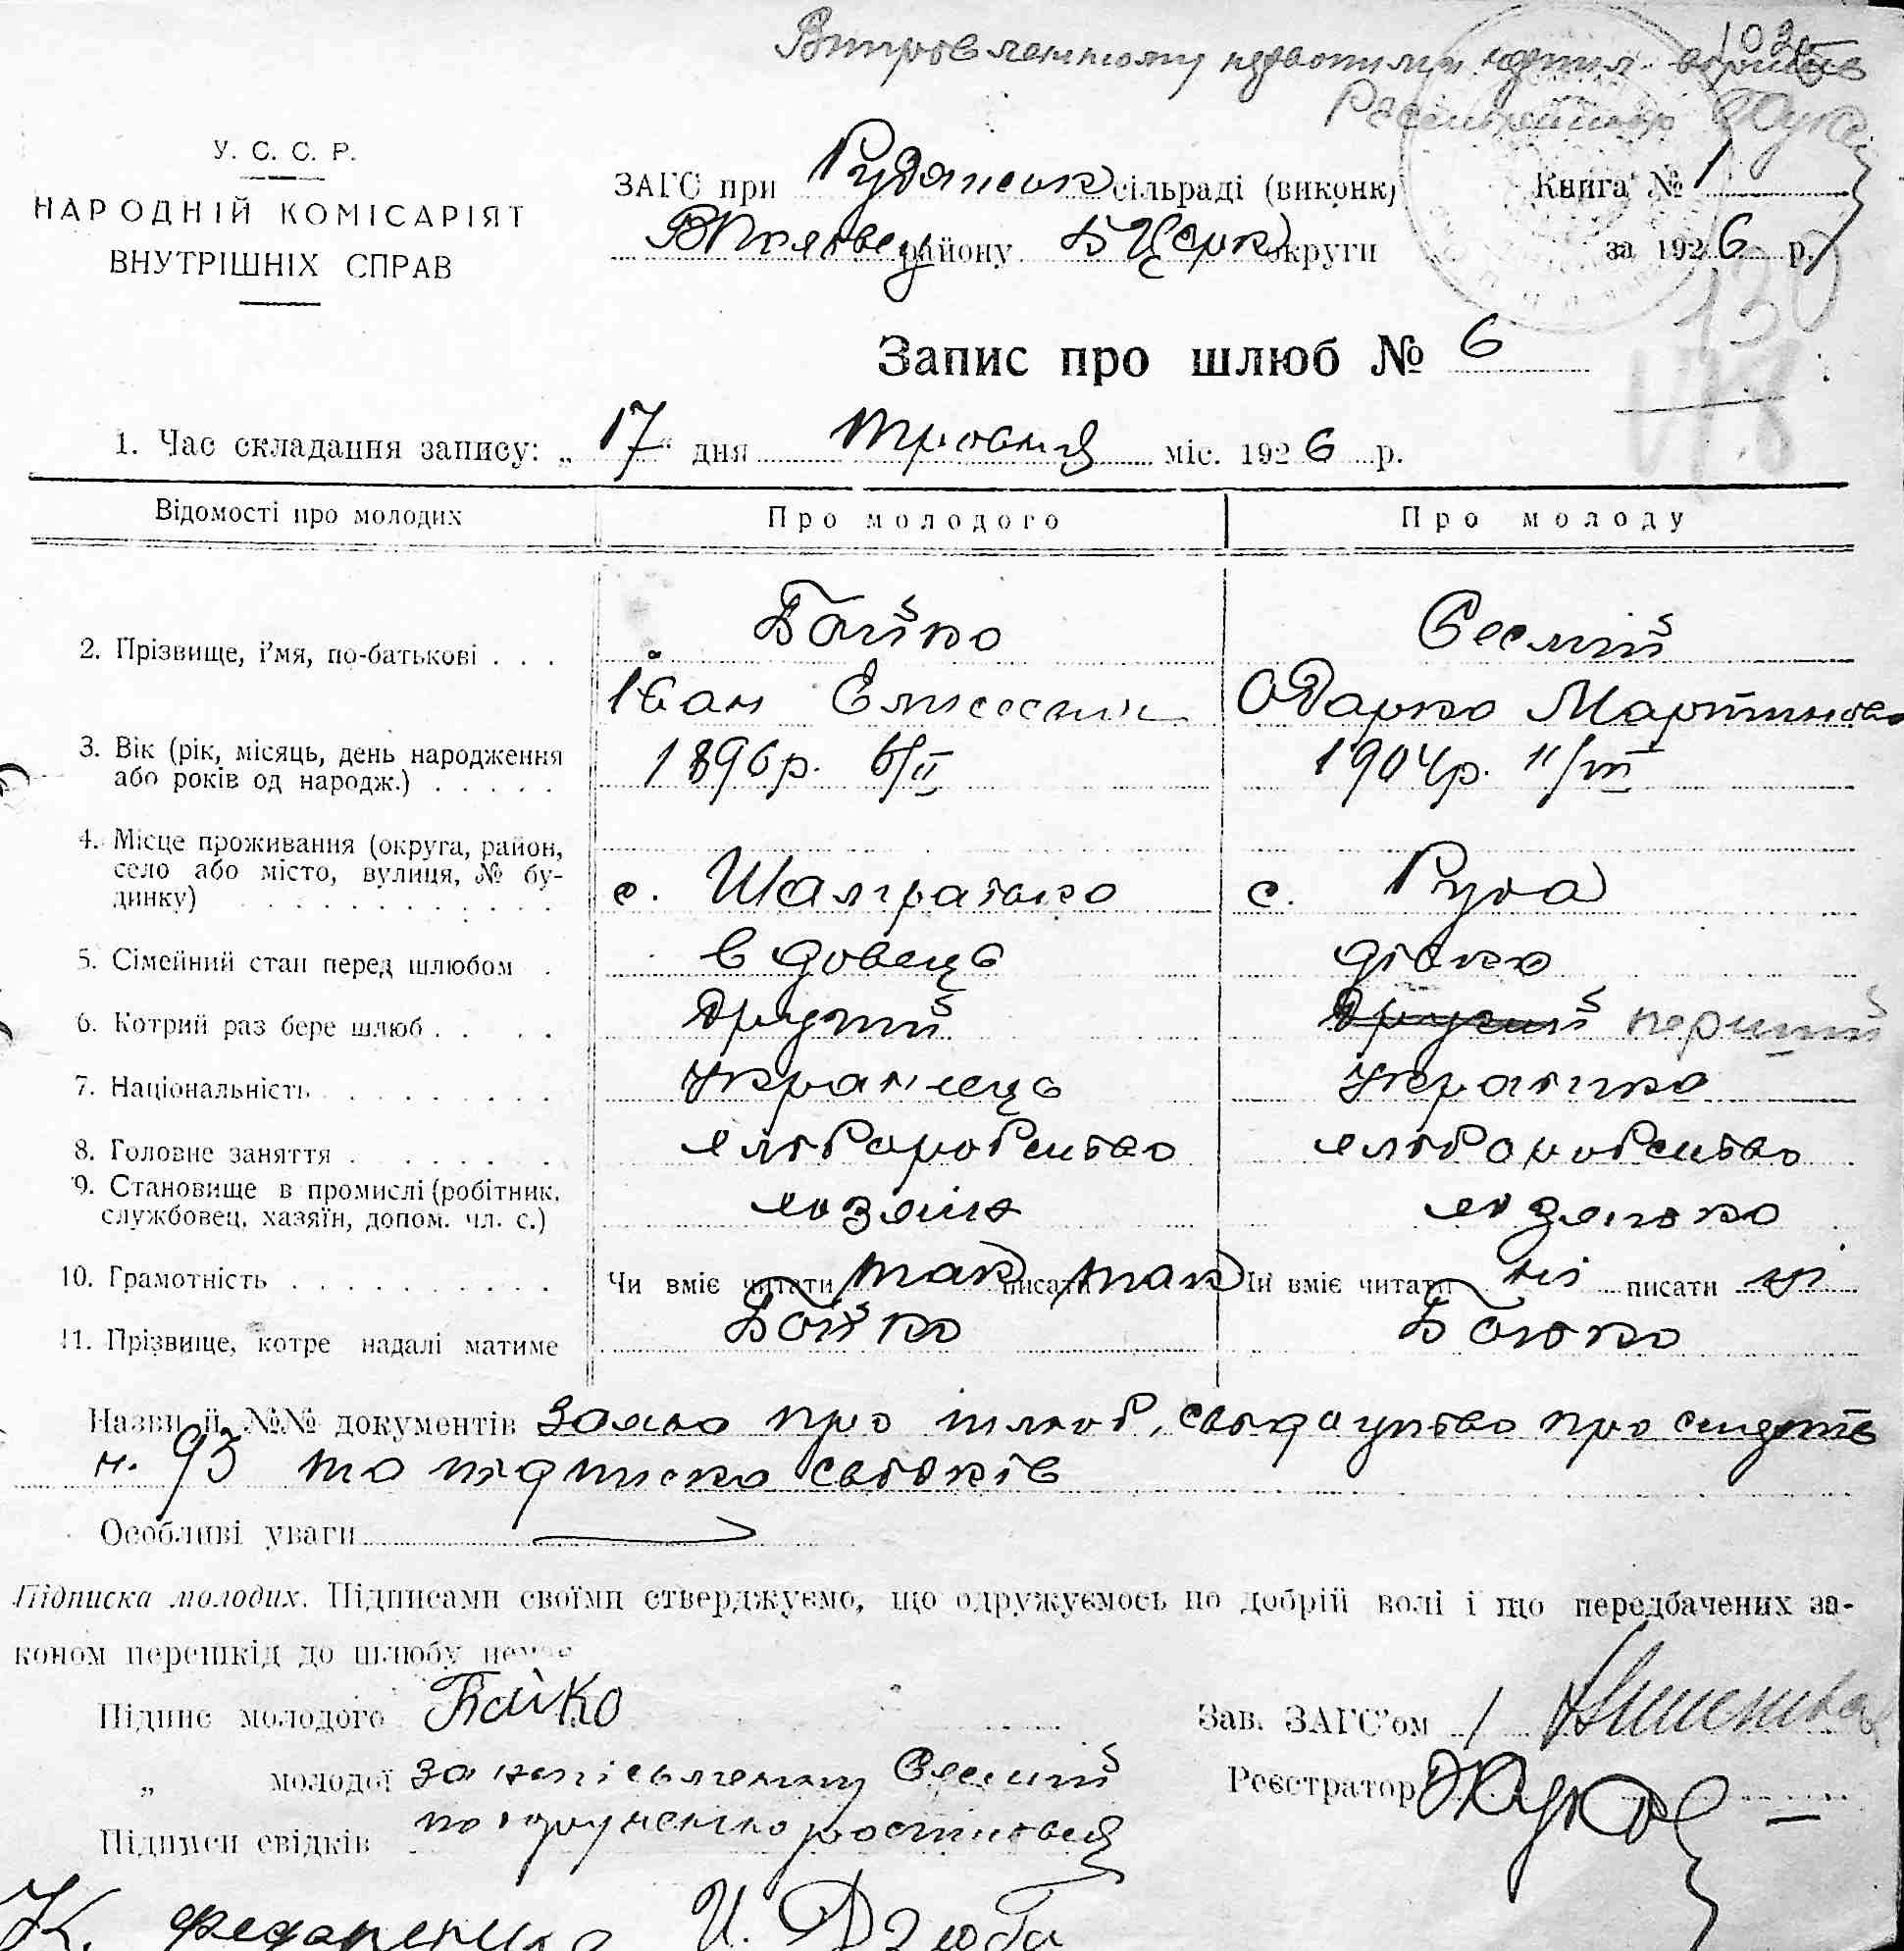 У. С. С. Р.
НАРОДНІЙ КОМІСАРІЯТ
ВНУТРІШНІХ СПРАВ
ЗАГС при Рудянськ сільраді (виконк)
Книга № 1
району БЦерк округи
за 1926 р.
130
Запис про шлюб № 6
1. Час складання запису: „ 17 “ дня травня міс. 1926 р.
Відомості про молодих
Про молодого
Про молоду
2. Прізвище, і'мя, по-батькові . . .
Бойко
Іван Елисеевич
Сеслій
Одарка Мартинова
3. Вік (рік, місяць, день народження
або років од народж.) . . . . .
1896р. 6/II
1904р. 11/III
4. Місце проживання (округа, район,
село або місто, вулиця, № бу-
динку) . . . . . . . . . . . .
с.
с. Руда
5. Сімейний стан перед шлюбом .
вдовець
дівка
6. Котрий раз бере шлюб . . . .
Другий
Другий перший
7. Національність . . . . . . . . .
Українець
Українка
8. Головне заняття . . . . . . .
хліборобство
хліборобство
9. Становище в промислі (робітник,
службовец, хазяїн, допом. чл. с.)
хазяїн
хазяйка
10. Грамотність . . . . . . . . . .
Чи вміє читати так писати так
Чи вміє читати ні писати ні
11. Прізвище, котре надалі матиме
Бойко
Бойко
Назви й №№ документів заява про шлюб, свідоцтво про смерть
н. 93 та підписка свідків
Особливі уваги
Підписка молодих. Підписами своїми стверджуємо, що одружуємось по добрій волі і що передбачених за-
коном перешкід до шлюбу немає
Підпис молодого Байко
Зав. ЗАГС'ом
„ молодої за неписьменну Сеслій
Реєстратор
по дорученню
Підписи свідків
К. Федоренко И. Дзюба